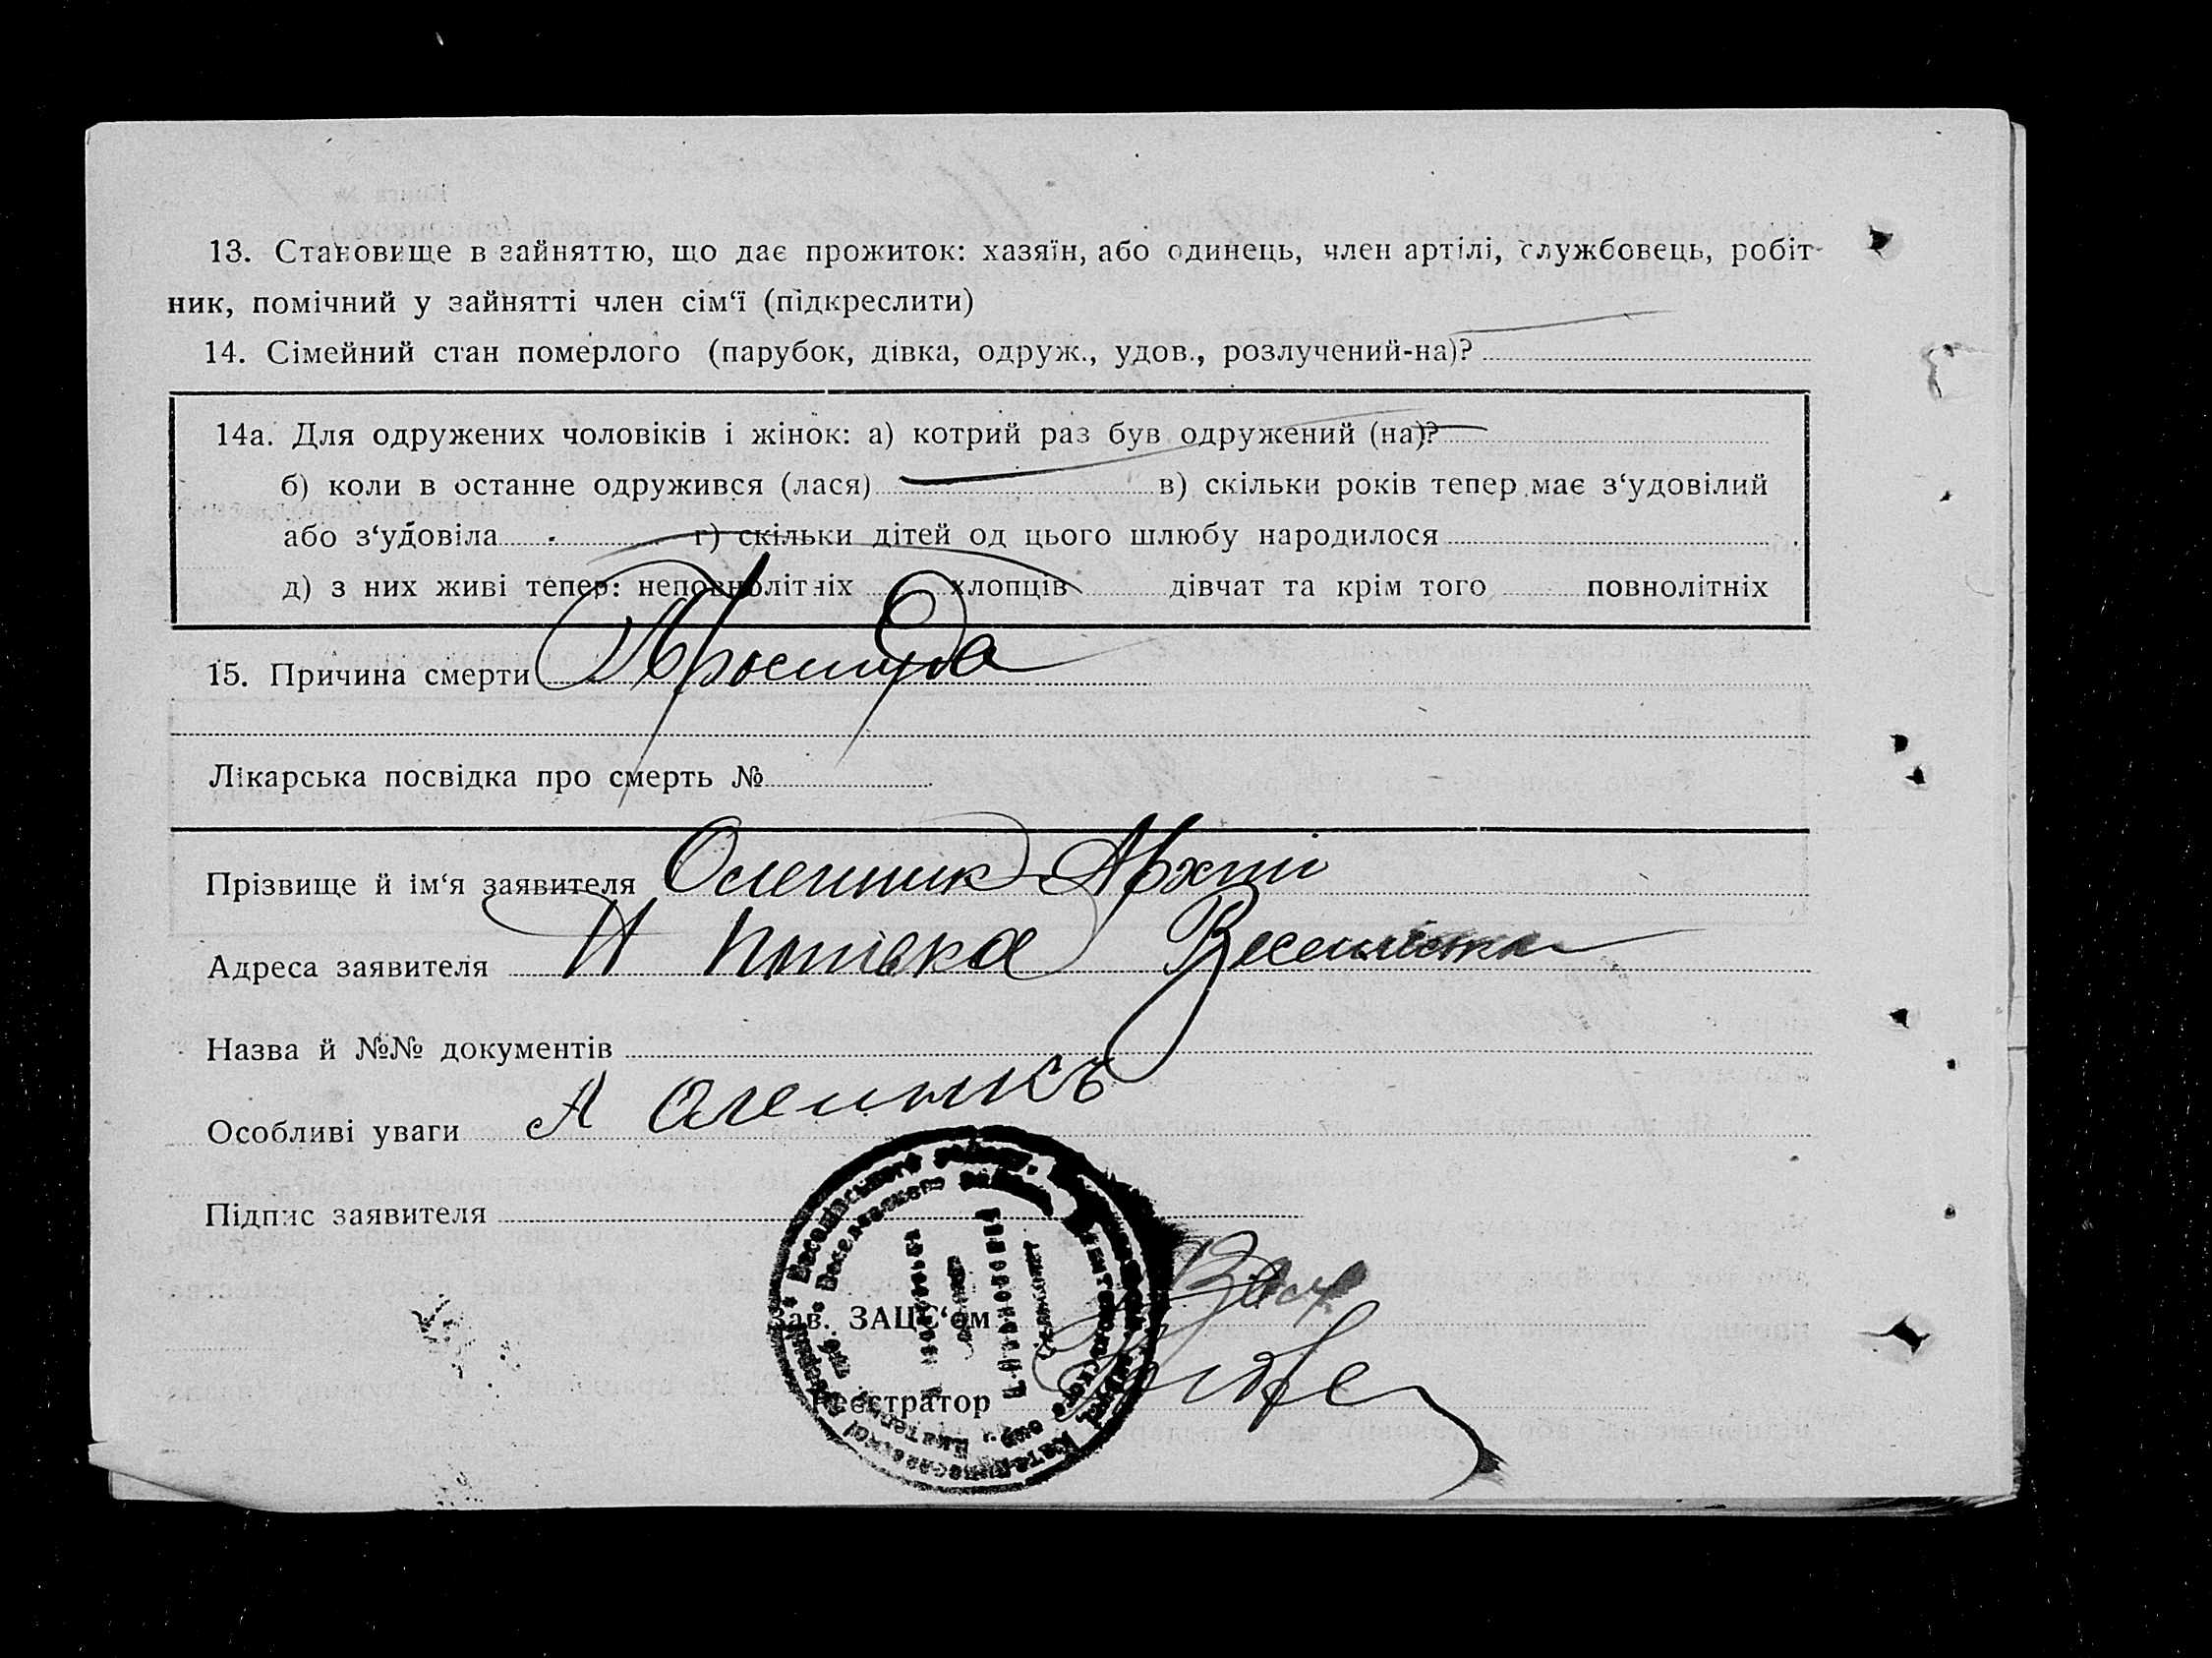 13. Становище в зайняттю, що дає прожиток: хазяїн, або одинець, член артілі, службовець, робіт-
ник, помічний у зайнятті член сім‘ї (підкреслити)
14. Сімейний стан померлого (парубок, дівка, одруж., удов., розлучений-на)?
14а. Для одружених чоловіків і жінок: а) котрий раз був одружений (на)?
б) коли в останне одружився (лася) в) скільки років тепер має з‘удовілий
або з‘удовіла г) скільки дітей од цього шлюбу народилося
д) з них живі тепер: неповнолітніх хлопців дівчат та крім того повнолітніх
15. Причина смерти Простуда
Лікарська посвідка про смерть №
Прізвище й ім‘я заявителя Оленник
Адреса заявителя Н
Назва й №№ документів
Особливі уваги А
Підпис заявителя
Зав. ЗАЦС‘ом
Реєстратор